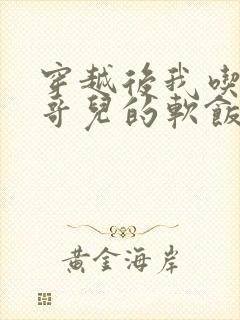 穿越後我喫
哥兒的軟飯
黃金海岸